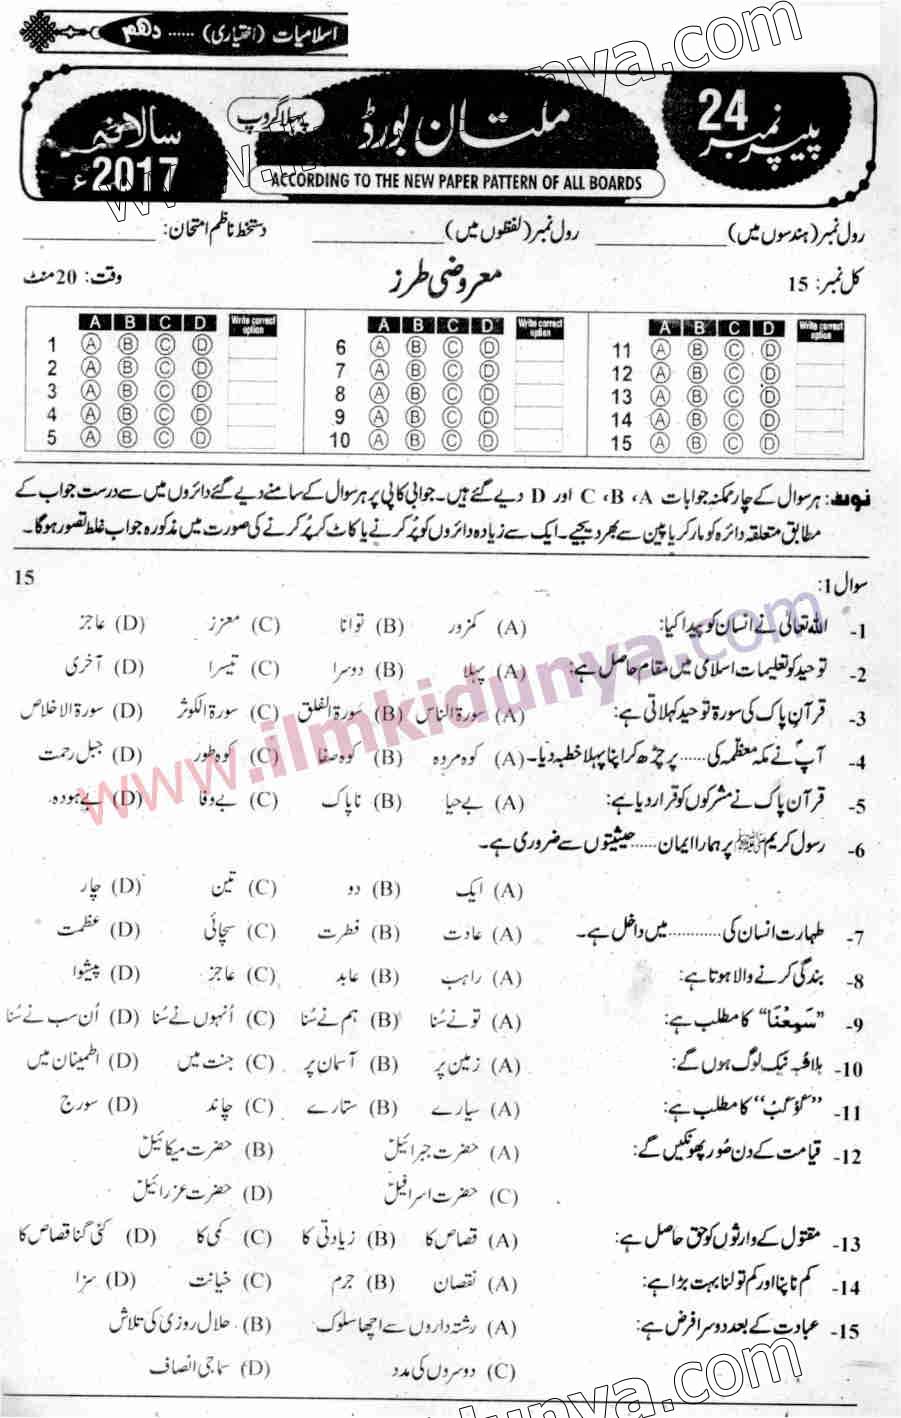 اسلامیات (اختیاری) ...... دہم
پیپر نمبر 24
ملتان بورڈ
پہلا گروپ
سالانہ 2017ء
ACCORDING TO THE NEW PAPER PATTERN OF ALL BOARDS
رول نمبر (ہندسوں میں) ____________ رول نمبر (لفظوں میں) ____________ دستخط ناظم امتحان: ____________
کل نمبر: 15 معروضی طرز وقت: 20 منٹ
A B C D Write correct option A B C D Write correct option A B C D Write correct option
1 A B C D 6 A B C D 11 A B C D
2 A B C D 7 A B C D 12 A B C D
3 A B C D 8 A B C D 13 A B C D
4 A B C D 9 A B C D 14 A B C D
5 A B C D 10 A B C D 15 A B C D
نوٹ: ہر سوال کے چار ممکنہ جوابات A ، B ، C اور D دیے گئے ہیں۔ جوابی کاپی پر ہر سوال کے سامنے دیے گئے دائروں میں سے درست جواب کے
مطابق متعلقہ دائرہ کو مارکر یا پین سے بھر دیجیے۔ ایک سے زیادہ دائروں کو پُر کرنے یا کاٹ کر پُر کرنے کی صورت میں مذکورہ جواب غلط تصور ہوگا۔
سوال 1: 15
1- اللہ تعالیٰ نے انسان کو پیدا کیا: (A) کمزور (B) توانا (C) معزز (D) عاجز
2- توحید کو تعلیمات اسلامی میں مقام حاصل ہے: (A) پہلا (B) دوسرا (C) تیسرا (D) آخری
3- قرآن پاک کی سورۃ توحید کہلاتی ہے: (A) سورۃ الناس (B) سورۃ الفلق (C) سورۃ الکوثر (D) سورۃ الاخلاص
4- آپؐ نے مکہ معظمہ کی ...... پر چڑھ کر اپنا پہلا خطبہ دیا۔ (A) کوہ مروہ (B) کوہ صفا (C) کوہ طور (D) جبل رحمت
5- قرآن پاک نے مشرکوں کو قرار دیا ہے: (A) بے حیا (B) ناپاک (C) بے وفا (D) بے ہودہ
6- رسول کریم ﷺ پر ہمارا ایمان ...... حیثیتوں سے ضروری ہے۔
(A) ایک (B) دو (C) تین (D) چار
7- طہارت انسان کی ........... میں داخل ہے۔ (A) عادت (B) فطرت (C) سچائی (D) عظمت
8- بندگی کرنے والا ہوتا ہے: (A) راہب (B) عابد (C) عاجز (D) پیشوا
9- ”سَمِعْنَا“ کا مطلب ہے: (A) تو نے سُنا (B) ہم نے سُنا (C) اُنہوں نے سُنا (D) اُن سب نے سُنا
10- بلاشبہ نیک لوگ ہوں گے: (A) زمین پر (B) آسمان پر (C) جنت میں (D) اطمینان میں
11- ”کَوْکَبُ“ کا مطلب ہے: (A) سیارے (B) ستارے (C) چاند (D) سورج
12- قیامت کے دن صُور پھونکیں گے: (A) حضرت جبرائیلؑ (B) حضرت میکائیلؑ
(C) حضرت اسرافیلؑ (D) حضرت عزرائیلؑ
13- مقتول کے وارثوں کو حق حاصل ہے: (A) قصاص کا (B) زیادتی کا (C) کمی کا (D) کئی گنا قصاص کا
14- کم ناپنا اور کم تولنا بہت بڑا ہے: (A) نقصان (B) جرم (C) خیانت (D) سزا
15- عبادت کے بعد دوسرا فرض ہے: (A) رشتہ داروں سے اچھا سلوک (B) حلال روزی کی تلاش
(C) دوسروں کی مدد (D) سماجی انصاف
www.ilmkidunya.com